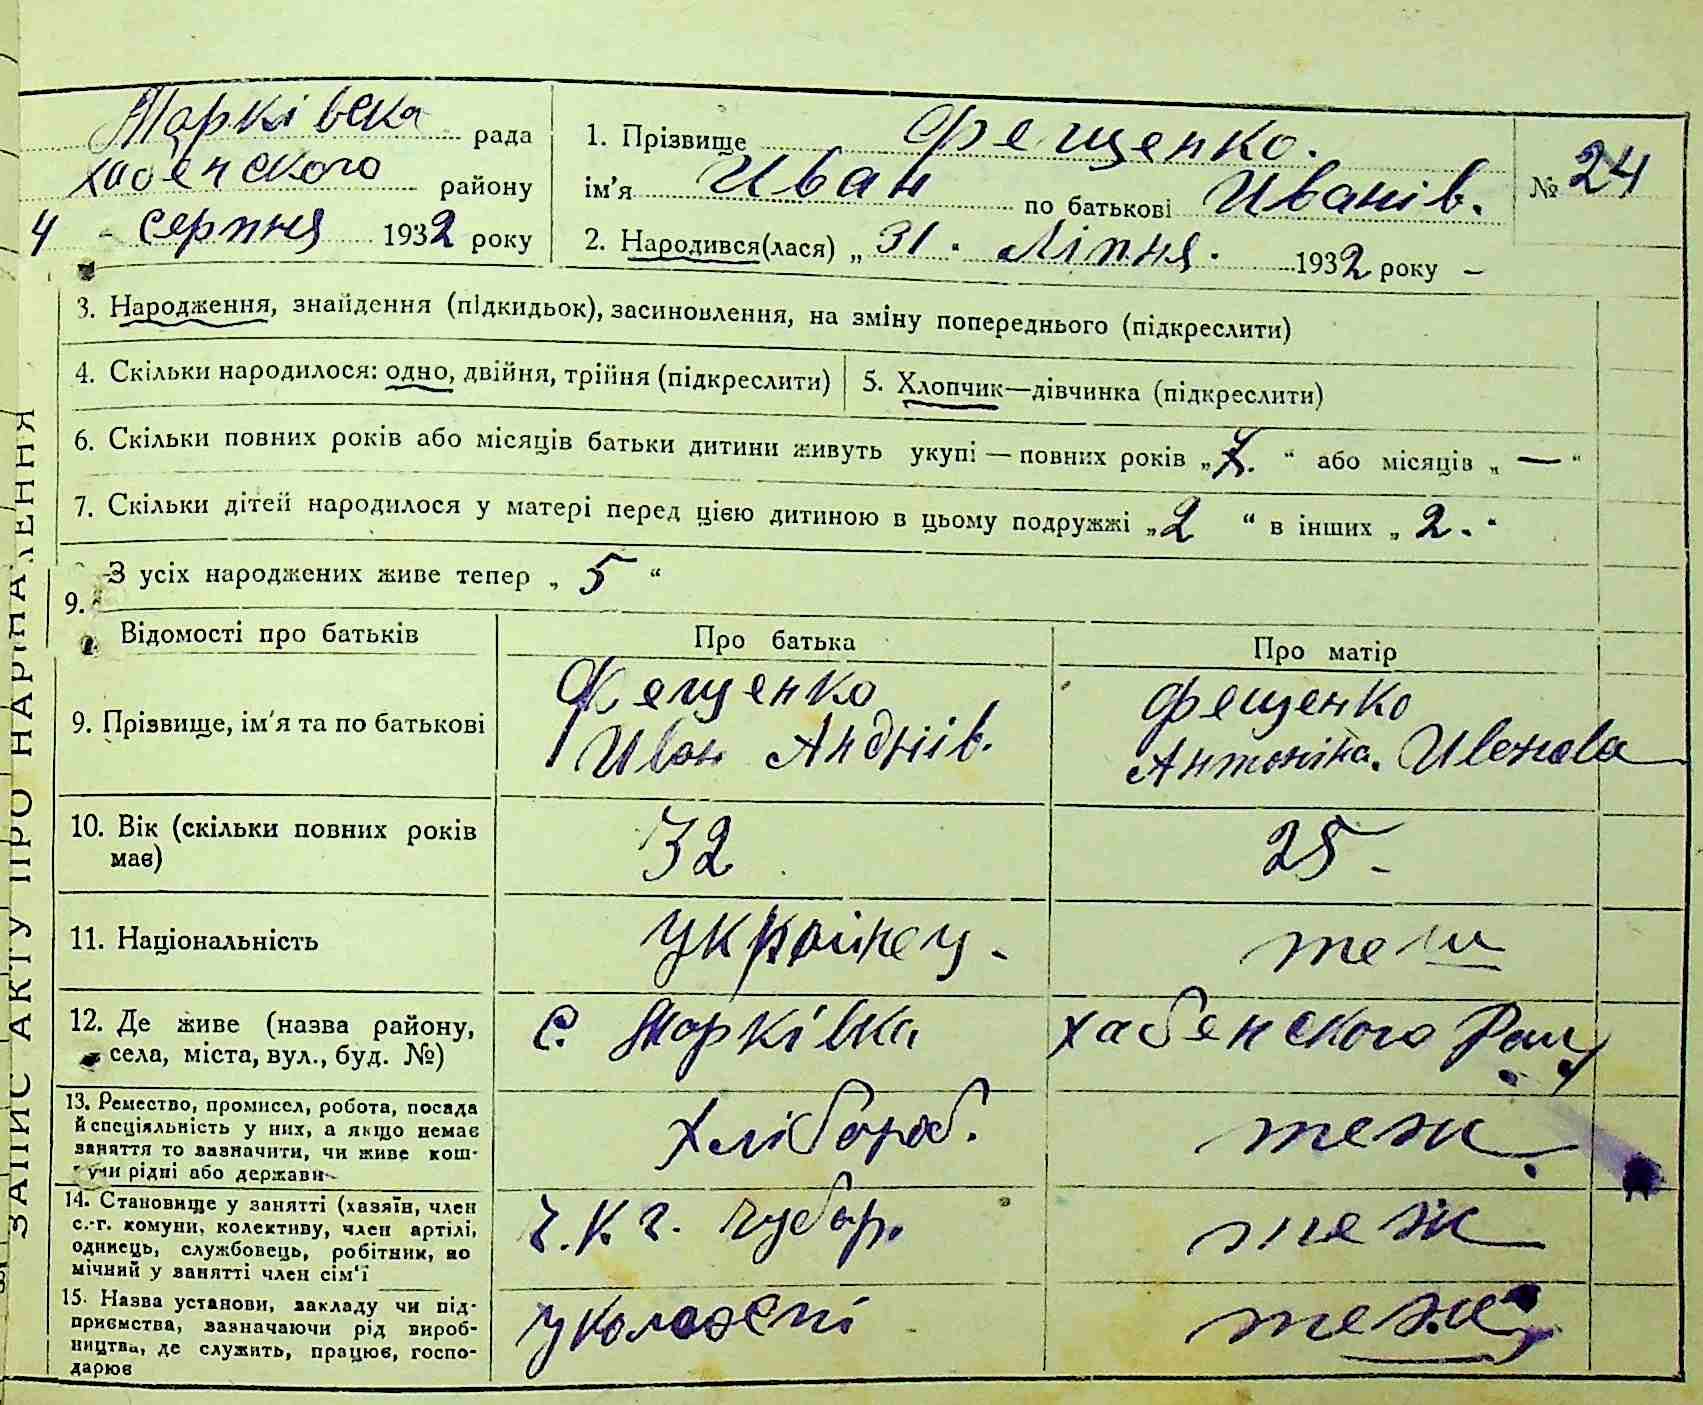 Марківска рада
хабенского району
4 - серпня 1932 року
1. Прізвище Фещенко.
ім’я Иван по батькові Иванів.
№ 24
2. Народився(лася) „ 31. Ліпня. 1932 року –
3. Народження, знайдення (підкидьок), засиновлення, на зміну попереднього (підкреслити)
4. Скільки народилося: одно, двійня, трійня (підкреслити)
5. Хлопчик—дівчинка (підкреслити)
6. Скільки повних років або місяців батьки дитини живуть укупі — повних років „ “ або місяців „ — “
7. Скільки дітей народилося у матері перед цією дитиною в цьому подружжі „ 2 “ в інших „ 2. “
З усіх народжених живе тепер „ 5 “
9.
Відомості про батьків
Про батька
Про матір
9. Прізвище, ім’я та по батькові
Фещенко
Иван Андріів.
Фещенко
Антоніна. Иванова
10. Вік (скільки повних років
має)
32
25 -
11. Національність
украінец -
теж
12. Де живе (назва району,
села, міста, вул., буд. №)
с. Марківка
хабенского Рай
13. Ремество, промисел, робота, посада
й спеціяльність у них, а якщо немає
заняття то зазначити, чи живе кош-
рідні або держави
хлібороб.
теж.
14. Становище у занятті (хазяїн, член
с.-г. комуни, колективу, член артілі,
одинець, службовець, робітник, по
мічний у занятті член сім’ї
теж
15. Назва установи, закладу чи під-
приємства, зазначаючи рід вироб-
ництва, де служить, працює, госпо-
дарює
у колгоспі
теж
ЗАПИС АКТУ ПРО НАРОДЖЕННЯ